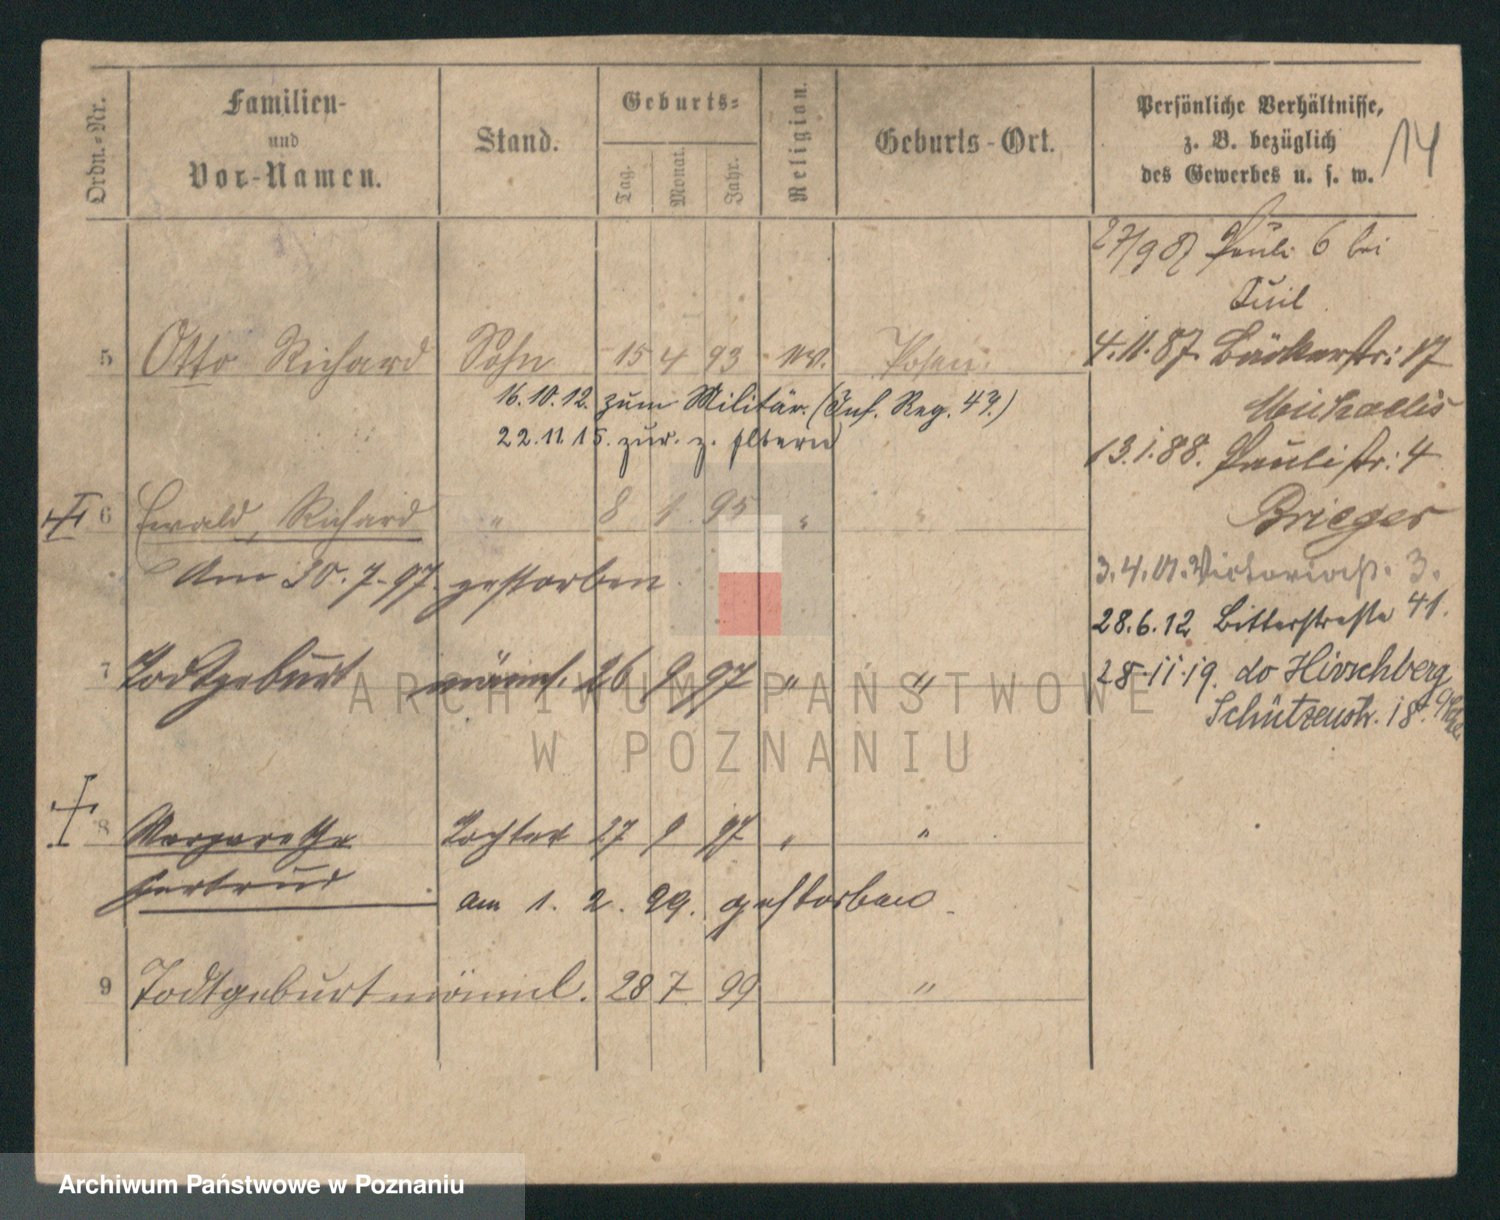 Ordn.-Nr.
Familien-
und
Vor-Namen.
Stand.
Geburts-
Tag.
Monat.
Jahr.
Religion.
Geburts-Ort.
Persönliche Verhältnisse,
z. B. bezüglich
des Gewerbes u. s. w.
14
27/9 87 Pauli 6 bei
5 Otto Richard Sohn 15 4 93 ev. Posen.
16.10.12. zum Militär. (Inf. Reg. 47.)
22.11.15. zur. z. Eltern
4.11.87. Bäckerstr: 17
Michaelis
13.1.88. Paulistr: 4
Brieger
6 Ewald, Richard " 8 1 95 " "
Am 30.7.97. gestorben.
3.4.01. Victoriast. 3.
28.6.12 Bitterstraße 41.
28.11.19. do Hirschberg
Schützenstr. 18
7 Todtgeburt männl. 26 9 97 " "
8 Margarethe Tochter 27 9 97 " "
Gertrud
am 1. 2. 99. gestorben.
9 Todtgeburt männl. 28 7 99 "
ARCHIWUM PAŃSTWOWE
W POZNANIU
Archiwum Państwowe w Poznaniu